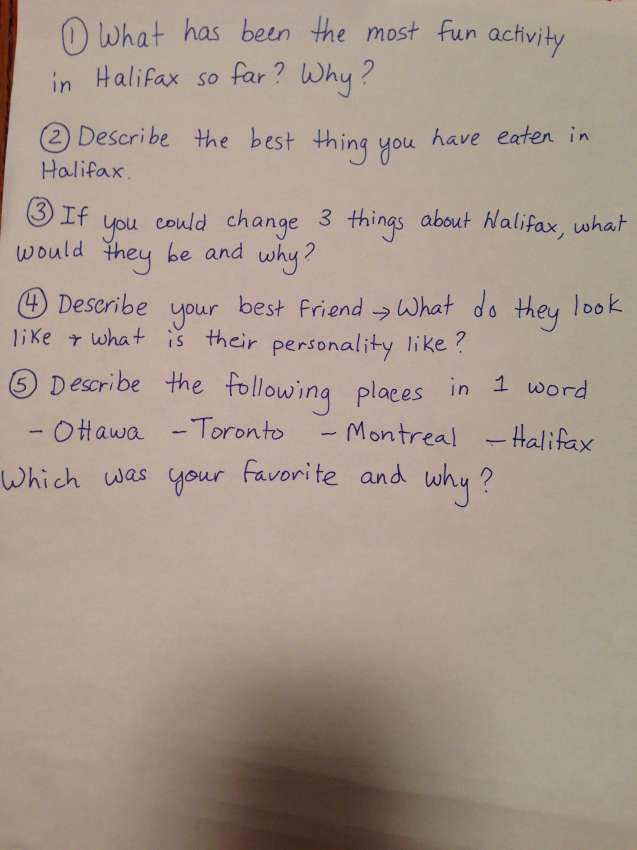 ① What has been the most fun activity
in Halifax so far? Why?
② Describe the best thing you have eaten in
Halifax.
③ If you could change 3 things about Halifax, what
would they be and why?
④ Describe your best friend → What do they look
like + what is their personality like?
⑤ Describe the following places in 1 word
- Ottawa - Toronto - Montreal - Halifax
Which was your favorite and why?